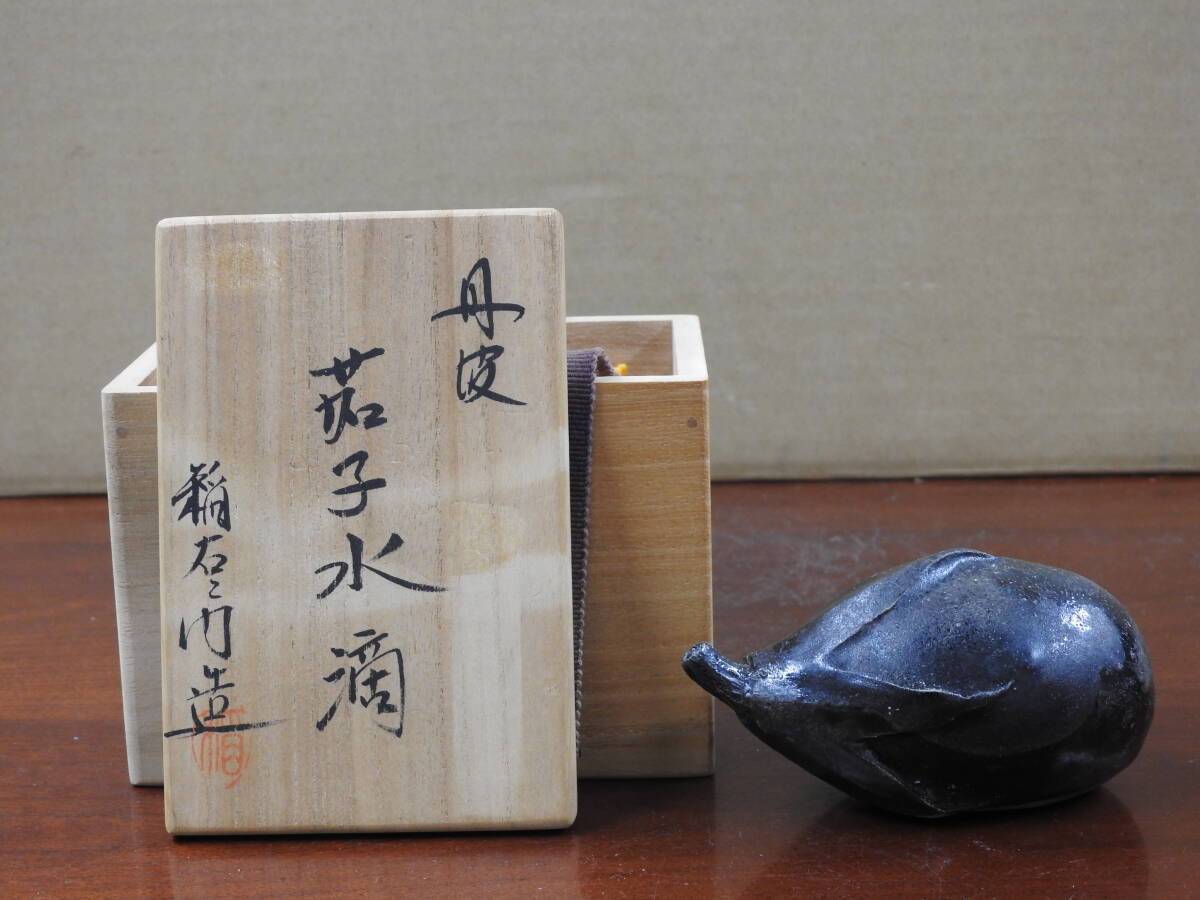 丹波
茄子水滴
稲右ヱ門造